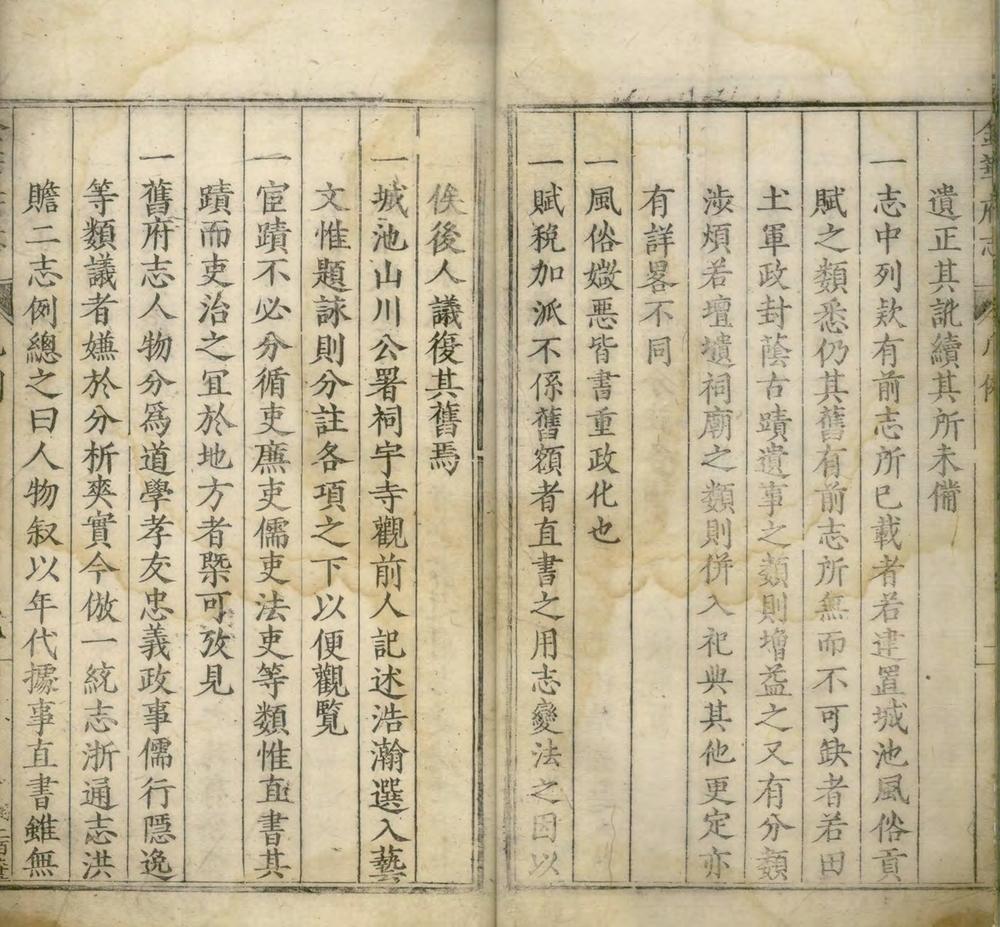 金華府志 凡例 二
遺正其訛續其所未備
一志中列欵有前志所已載者若建置城池風俗貢
賦之類悉仍其舊有前志所無而不可缺者若田
土軍政封蔭古蹟遺事之類則增益之又有分類
涉煩若壇墳祠廟之類則併入祀典其他更定亦
有詳畧不同
一風俗媺悪皆書重政化也
一賦稅加派不係舊額者直書之用志變法之因以
俟後人議復其舊焉
一城池山川公署祠宇寺觀前人記述浩瀚選入藝
文惟題詠則分註各項之下以便觀覽
一宦蹟不必分循吏廉吏儒吏法吏等類惟直書其
蹟而吏治之宜於地方者槩可攷見
一舊府志人物分爲道學孝友忠義政事儒行隱逸
等類議者嫌於分析爽實今倣一統志浙通志洪
贍二志例總之曰人物叙以年代據事直書雖無